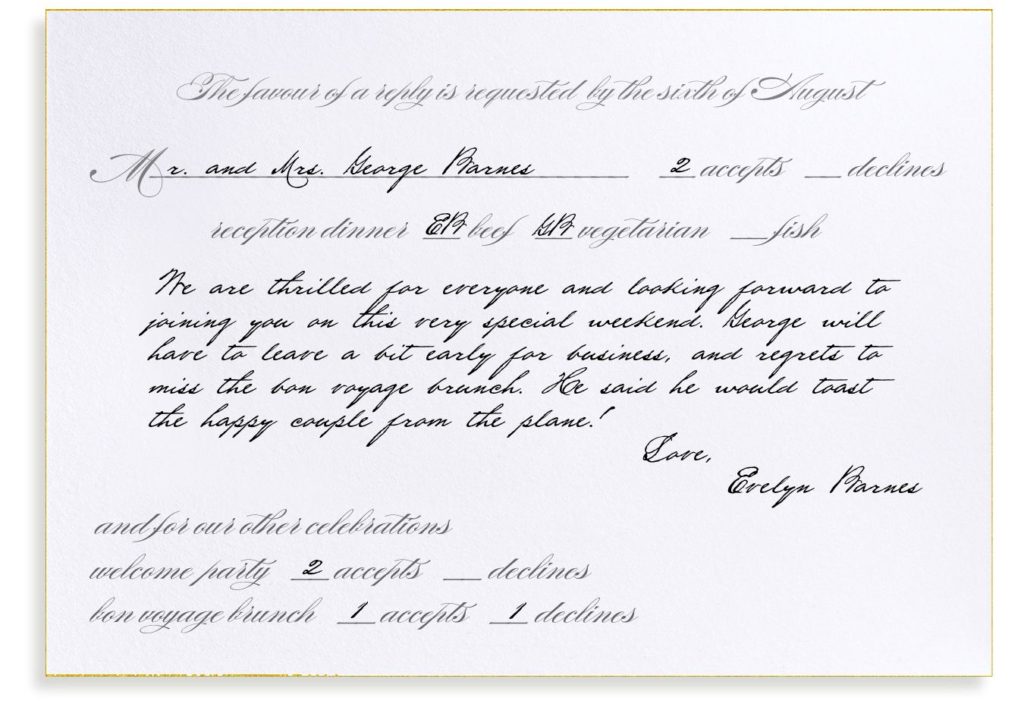 The favour of a reply is requested by the sixth of August
Mr. and Mrs. George Barnes 2 accepts __ declines
reception dinner EB beef GB vegetarian __ fish
We are thrilled for everyone and looking forward to
joining you on this very special weekend. George will
have to leave a bit early for business, and regrets to
miss the bon voyage brunch. He said he would toast
the happy couple from the plane!
Love,
Evelyn Barnes
and for our other celebrations
welcome party 2 accepts __ declines
bon voyage brunch 1 accepts 1 declines